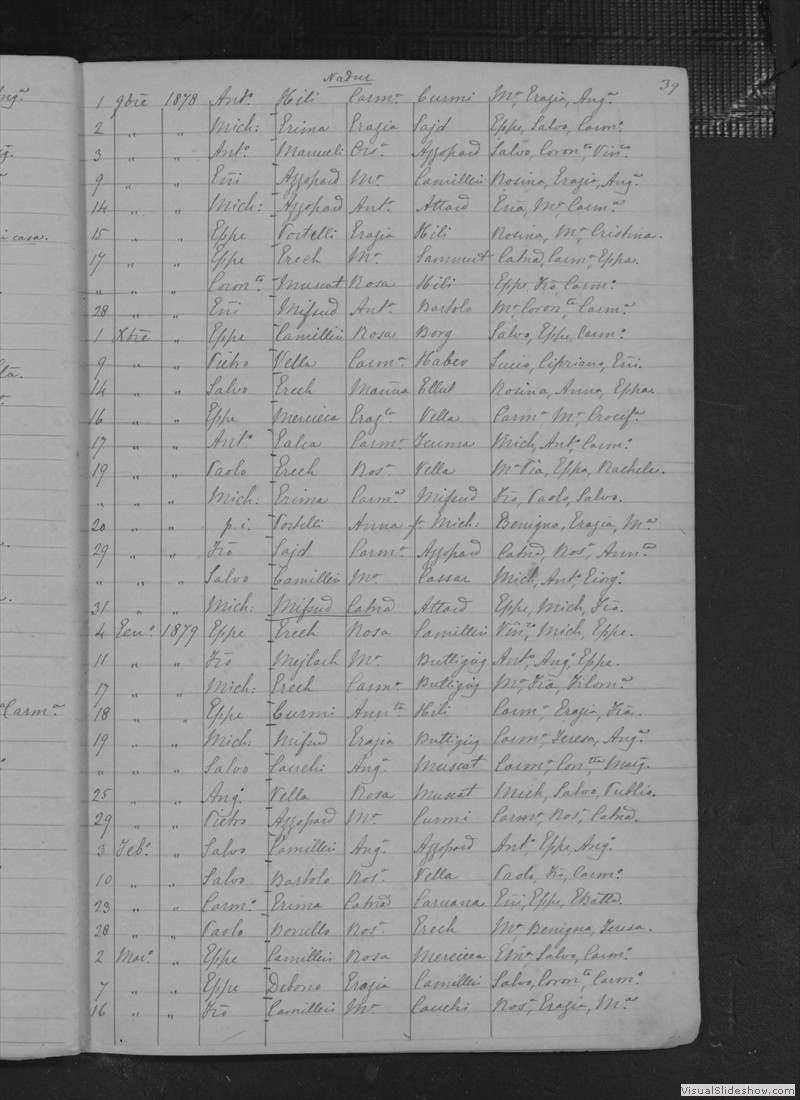 Nadur
39
1 9bre 1878 Ant.º Hili Carm.ª Curmi M.ª Grazia, Ang.ª
2 " " Mich: Grima Grazia Sajd Eppe, Salvo, Carm.º
3 " " Ant.º Manueli Ors.ª Azzopard Salvo, Coron.ta, Vin.zo
9 " " Em̃i Azzopard M.ª Camilleri Rosina, Grazia, Ang.ª
14 " " Mich: Azzopard Ant.ª Attard M.ª Carm.ª
15 " " Eppe Portelli Grazia Hili Rosina, M.ª Cristina.
17 " " Eppe Grech M.ª Sammut Catnã, Carm.ª, Eppa.
" " " Coron.to Muscat Rosa Hili Eppe, Frõ Carm.º
28 " " Em̃i Mifsud Ant.ª Bartolo M.ª Coron.ta Carm.ª
1 Xbre " Eppe Camilleri Rosa Borg Salvo, Eppe, Carm.º
9 " " Pietro Vella Carm.ª Haber Lucio, Cipriano, Em̃i.
14 " " Salvo Grech Ellul Rosina, Anna, Eppa.
16 " " Eppe Mercieca Graz.la Vella Carm.ª M.ª Crocif.ª
17 " " Ant.º Galea Carm.ª Mich, Ant.º, Carm.º
19 " " Paolo Grech Ros.ª Vella M.ª Pia, Eppa, Rachele.
" " " Mich: Grima Carm.ª Mifsud Frõ, Paolo, Salvo.
20 " " p. i. Portelli Anna f. Mich: Benigna, Grazia, M.ª
29 " " Frõ Sajd Carm.ª Azzopard Catnã, Ros.ª, Ann.ª
" " " Salvo Camilleri M.ª Cassar Mich, Ant.º, Giorg.º
31 " " Mich: Mifsud Catnã Attard Eppe, Mich, Frõ.
4 Gen.º 1879 Eppe Grech Rosa Camilleri Vin.zo, Mich, Eppe.
11 " " Frõ Mejlach M.ª Buttigieg Ant.º, Ang.º Eppe.
17 " " Mich: Grech Carm.ª Buttigieg M.ª Frã, Filom.ª
18 " " Eppe Curmi Ann.ta Hili Carm.ª Grazia, Frã.
19 " " Mich: Mifsud Grazia Buttigieg Carm.ª, Teresa, Ang.ª
" " " Salvo Cauchi Ang.ª Muscat Carm.ª
25 " " Ang.º Vella Rosa Muscat Mich, Salvo, Publio.
29 " " Pietro Azzopard M.ª Curmi Carm.ª, Ros.ª, Catnã.
3 Feb.º " Salvo Camilleri Ang.ª Azzopard Ant.º, Eppe, Ang.º
10 " " Salvo Bartolo Ros.ª Vella Paolo, Frõ, Carm.º
23 " " Carm.º Grima Catnã Caruana Em̃i, Eppe, GBatta.
28 " " Paolo Bonello Ros.ª Grech M.ª Benigna, Teresa.
2 Mar.º " Eppe Camilleri Rosa Mercieca Salvo, Carm.º
7 " " Eppe Debono Grazia Camilleri Salvo, Coron.to, Carm.º
16 " " Frõ Camilleri M.ª Cauchi Ros.ª, Grazia, M.ª
i casa.
Carm.ª
VisualSlideshow.com